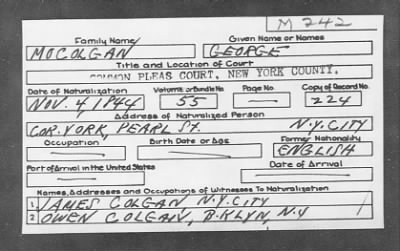 M 242
Family Name Given Name or Names
MCCOLGAN GEORGE
Title and Location of Court
COMMON PLEAS COURT, NEW YORK COUNTY.
Date of Naturalization Volume or Bundle No. Page No. Copy of Record No.
NOV. 4, 1844 55 — 224
Address of Naturalized Person
COR. YORK, PEARL ST. N.Y. CITY
Occupation Birth Date or Age Former Nationality
— — ENGLISH
Port of Arrival in the United States Date of Arrival
— —
Names, Addresses and Occupations of Witnesses To Naturalization
1 JAMES COLGAN N.Y. CITY
2 OWEN COLGAN, B.KLYN, N.Y